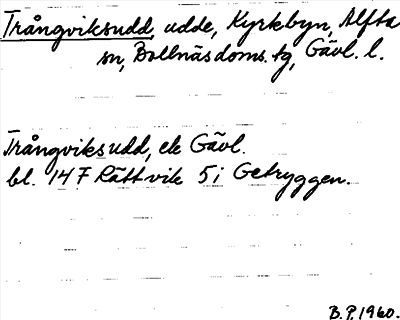 Trångviksudd, udde, Kyrkbyn, Alfta
sn, Bollnäs doms. tg, Gävl. l.
Trångviksudd, ek Gävl.
bl. 14 F Rättvik 5 i Getryggen.
B.P. 1960.